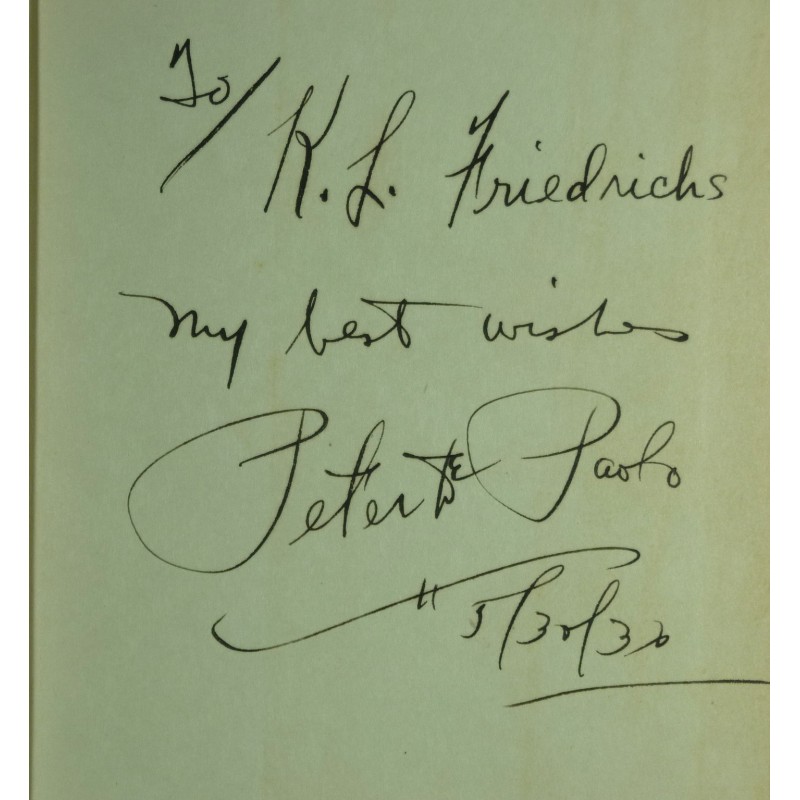 To/
K. L. Friedrichs
my best wishes
Peter De Paolo
" 5/30/30